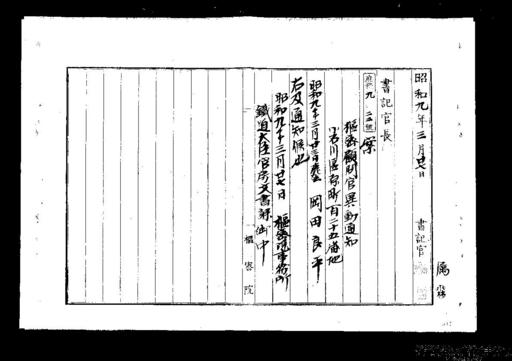 昭和九年三月廿七日
書記官長
書記官
属
案
枢密顧問官異動通知
小石川区原町百二十五番地
昭和九年三月廿三日薨去 岡田良平
右及通知候也
昭和九年三月廿七日 枢密院事務所
鐵道大臣官房文書課御中
枢密院